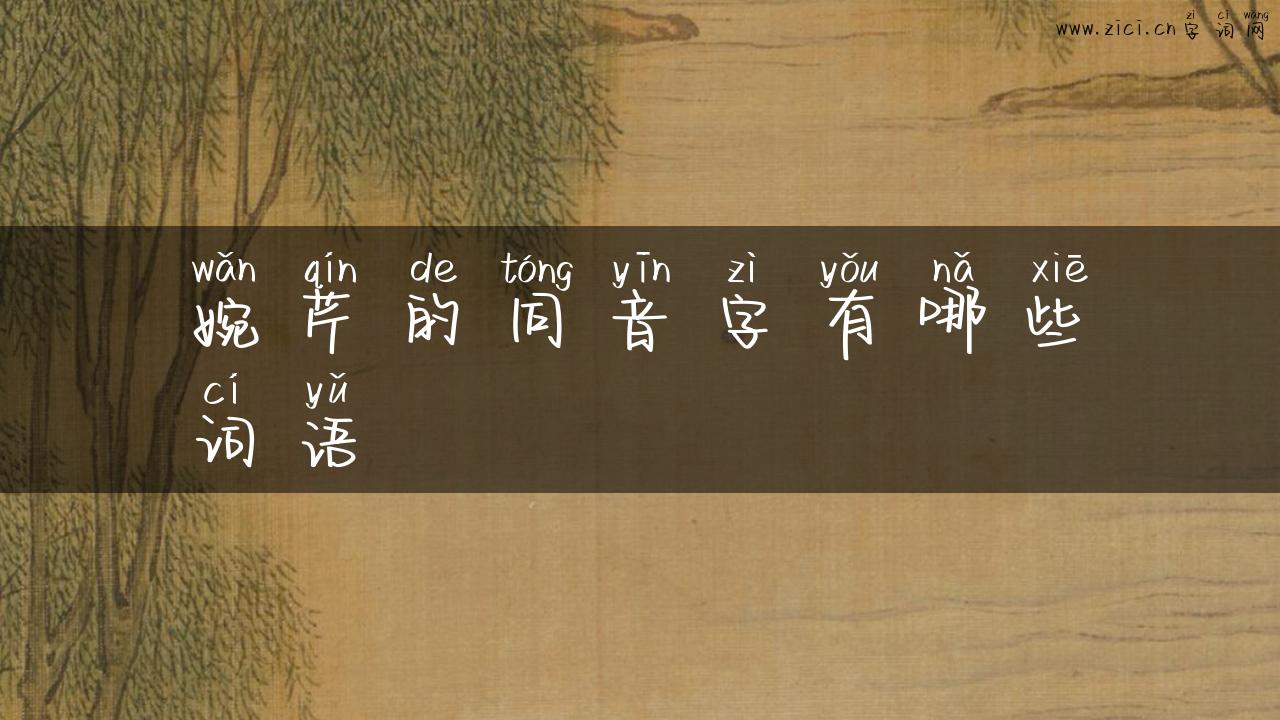 zì cí wǎng
www.zici.cn 字词网
wǎn qín de tóng yīn zì yǒu nǎ xiē
婉芹的同音字有哪些
cí yǔ
词语